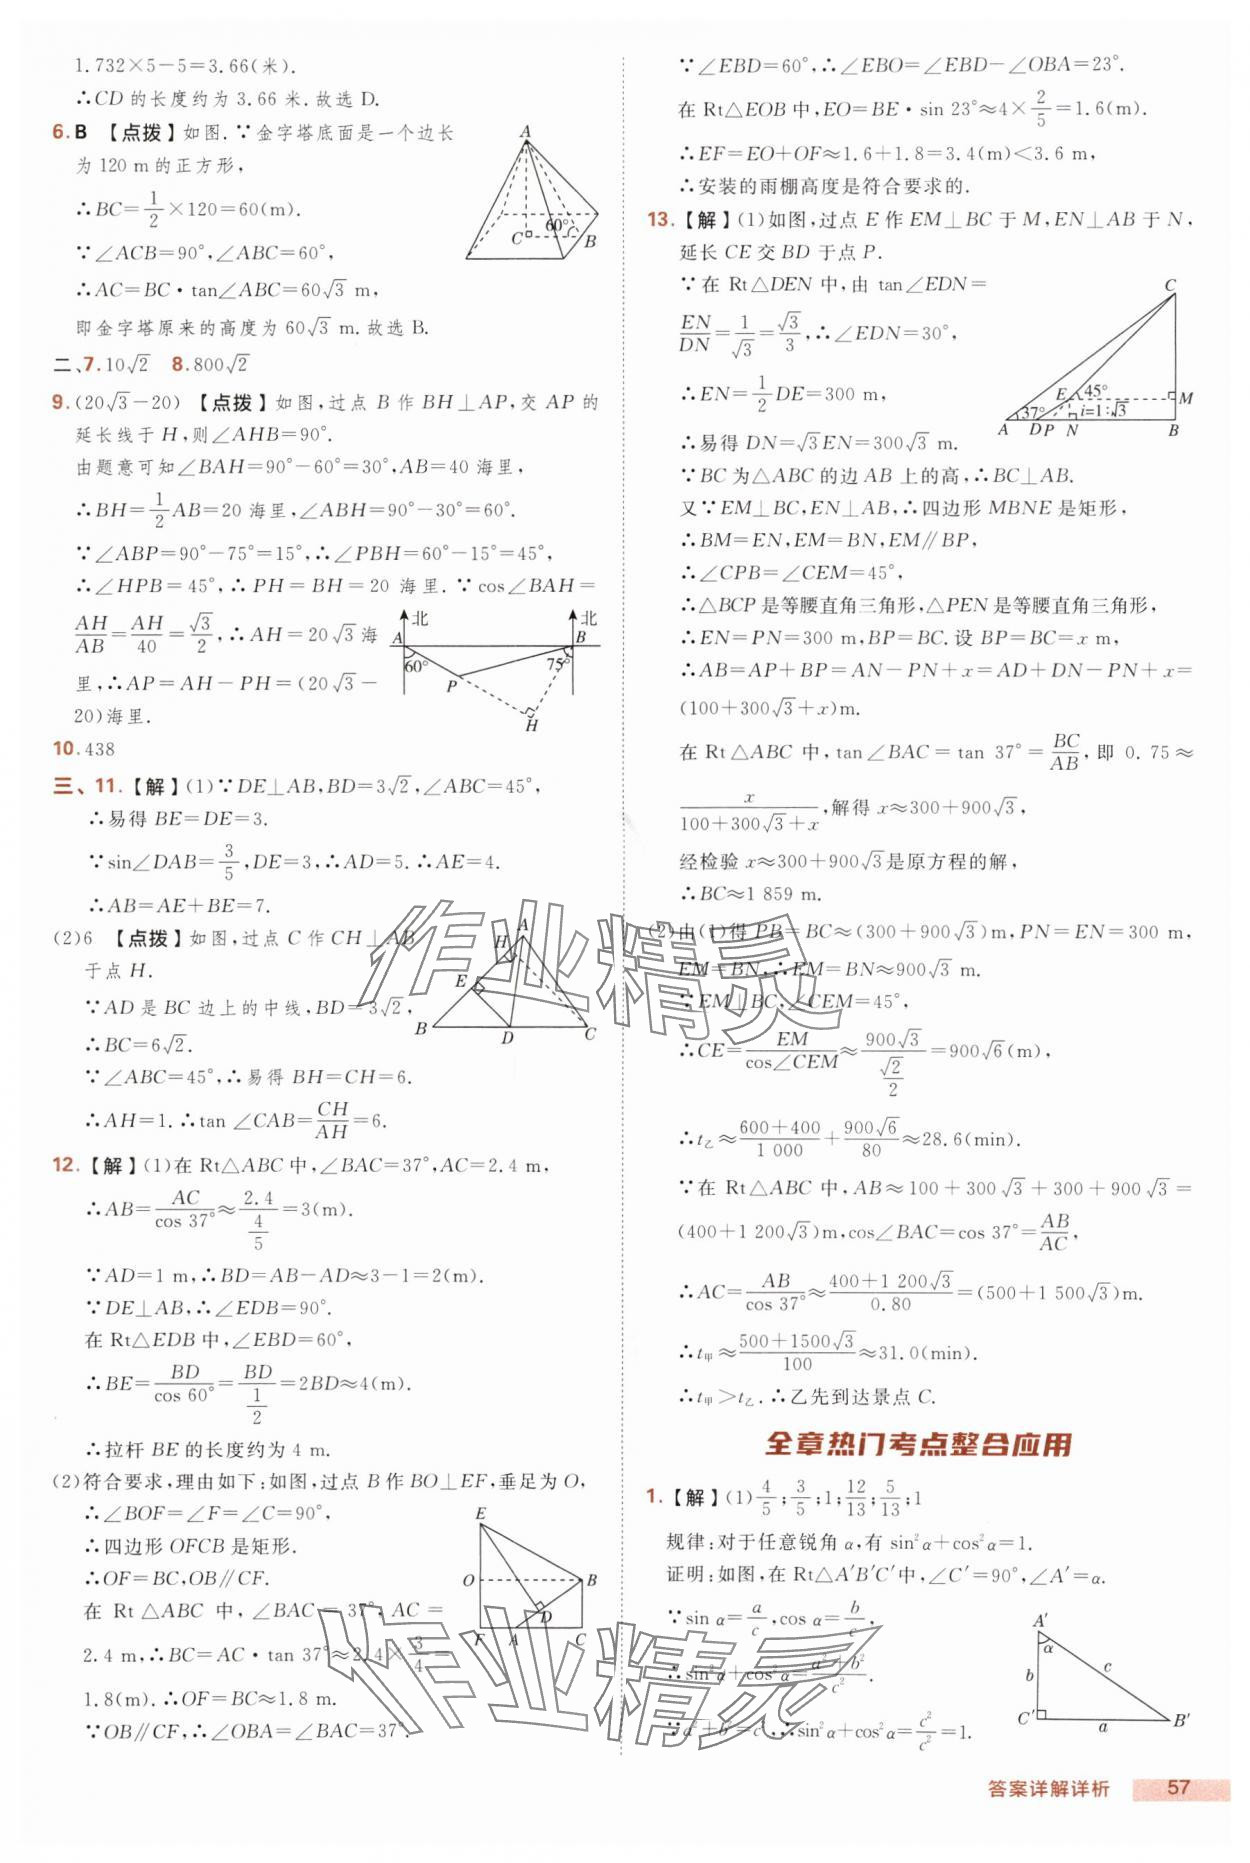 1.732×5－5＝3.66(米).
∴CD 的长度约为 3.66 米.故选 D.
6.B 【点拨】如图.∵金字塔底面是一个边长
为 120 m 的正方形,
∴BC＝1/2×120＝60(m).
∵∠ACB＝90°,∠ABC＝60°,
∴AC＝BC·tan∠ABC＝60√3 m,
即金字塔原来的高度为 60√3 m.故选 B.
A
60°
C
B
二、7.10√2 8.800√2
9.(20√3－20) 【点拨】如图,过点 B 作 BH⊥AP,交 AP 的
延长线于 H,则∠AHB＝90°.
由题意可知∠BAH＝90°－60°＝30°,AB＝40 海里,
∴BH＝1/2AB＝20 海里,∠ABH＝90°－30°＝60°.
∵∠ABP＝90°－75°＝15°,∴∠PBH＝60°－15°＝45°,
∴∠HPB＝45°,∴PH＝BH＝20 海里.∵cos∠BAH＝
AH/AB＝AH/40＝√3/2,∴AH＝20√3 海
里,∴AP＝AH－PH＝(20√3－
20)海里.
北
北
A
B
60°
75°
P
H
10.438
三、11.【解】(1)∵DE⊥AB,BD＝3√2,∠ABC＝45°,
∴易得 BE＝DE＝3.
∵sin∠DAB＝3/5,DE＝3,∴AD＝5.∴AE＝4.
∴AB＝AE＋BE＝7.
(2)6 【点拨】如图,过点 C 作 CH⊥AB
于点 H.
∵AD 是 BC 边上的中线,BD＝3√2,
∴BC＝6√2.
∵∠ABC＝45°,∴易得 BH＝CH＝6.
∴AH＝1.∴tan ∠CAB＝CH/AH＝6.
A
H
E
B
D
C
12.【解】(1)在 Rt△ABC 中,∠BAC＝37°,AC＝2.4 m,
∴AB＝AC/cos 37°≈2.4/(4/5)＝3(m).
∵AD＝1 m,∴BD＝AB－AD≈3－1＝2(m).
∵DE⊥AB,∴∠EDB＝90°.
在 Rt△EDB 中,∠EBD＝60°,
∴BE＝BD/cos 60°＝BD/(1/2)＝2BD≈4(m).
∴拉杆 BE 的长度约为 4 m.
(2)符合要求,理由如下:如图,过点 B 作 BO⊥EF,垂足为 O,
∴∠BOF＝∠F＝∠C＝90°,
∴四边形 OFCB 是矩形.
∴OF＝BC,OB∥CF.
在 Rt△ABC 中,∠BAC＝37°,AC＝
2.4 m,∴BC＝AC·tan 37°≈2.4×3/4＝
1.8(m).∴OF＝BC≈1.8 m.
∵OB∥CF,∴∠OBA＝∠BAC＝37°.
E
O
B
D
F
A
C
∵∠EBD＝60°,∴∠EBO＝∠EBD－∠OBA＝23°.
在 Rt△EOB 中,EO＝BE·sin 23°≈4×2/5＝1.6(m).
∴EF＝EO＋OF≈1.6＋1.8＝3.4(m)＜3.6 m,
∴安装的雨棚高度是符合要求的.
13.【解】(1)如图,过点 E 作 EM⊥BC 于 M,EN⊥AB 于 N,
延长 CE 交 BD 于点 P.
∵在 Rt△DEN 中,由 tan∠EDN＝
EN/DN＝1/√3＝√3/3,∴∠EDN＝30°,
∴EN＝1/2DE＝300 m,
∴易得 DN＝√3EN＝300√3 m.
C
E
45°
M
37°
i=1:√3
A
D
P
N
B
∵BC 为△ABC 的边 AB 上的高,∴BC⊥AB.
又∵EM⊥BC,EN⊥AB,∴四边形 MBNE 是矩形,
∴BM＝EN,EM＝BN,EM∥BP,
∴∠CPB＝∠CEM＝45°,
∴△BCP 是等腰直角三角形,△PEN 是等腰直角三角形,
∴EN＝PN＝300 m,BP＝BC.设 BP＝BC＝x m,
∴AB＝AP＋BP＝AN－PN＋x＝AD＋DN－PN＋x＝
(100＋300√3＋x)m.
在 Rt△ABC 中,tan∠BAC＝tan 37°＝BC/AB,即 0.75≈
x/(100＋300√3＋x),解得 x≈300＋900√3,
经检验 x≈300＋900√3是原方程的解,
∴BC≈1 859 m.
(2)由(1)得 PB＝BC≈(300＋900√3)m,PN＝EN＝300 m,
EM＝BN,∴EM＝BN≈900√3 m.
∵EM⊥BC,∠CEM＝45°,
∴CE＝EM/cos∠CEM≈900√3/(√2/2)＝900√6(m),
∴t乙≈(600＋400)/1 000＋900√6/80≈28.6(min).
∵在 Rt△ABC 中,AB≈100＋300√3＋300＋900√3＝
(400＋1 200√3)m,cos∠BAC＝cos 37°＝AB/AC,
∴AC＝AB/cos 37°≈(400＋1 200√3)/0.80＝(500＋1 500√3)m.
∴t甲≈(500＋1500√3)/100≈31.0(min).
∴t甲＞t乙.∴乙先到达景点 C.
全章热门考点整合应用
1.【解】(1)4/5;3/5;1;12/13;5/13;1
规律:对于任意锐角 α,有 sin²α＋cos²α＝1.
证明:如图,在 Rt△A′B′C′中,∠C′＝90°,∠A′＝α.
∵sin α＝a/c,cos α＝b/c,
∴sin²α＋cos²α＝(a²＋b²)/c².
∵a²＋b²＝c²,∴sin²α＋cos²α＝c²/c²＝1.
A′
α
b
c
C′
a
B′
作业精灵
作业精灵
答案详解详析 57